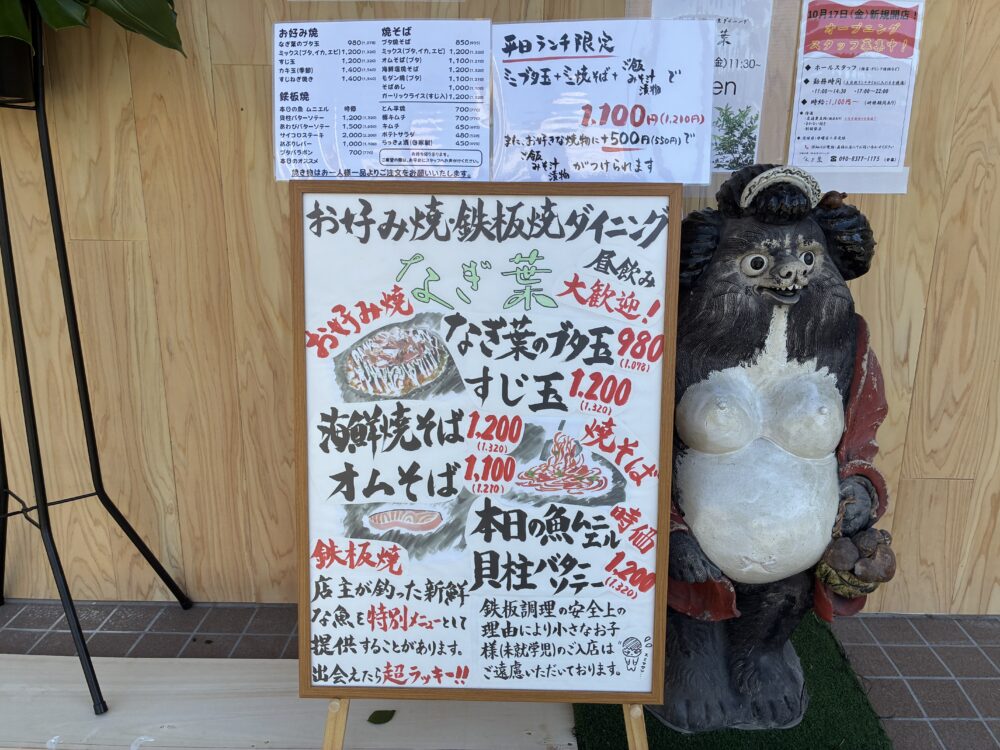 お好み焼
なぎ葉のブタ玉 980(1,078)
ミックス(ブタ,イカ,エビ) 1,200(1,320)
すじ玉 1,200(1,320)
カキ玉(季節) 1,400(1,540)
すじねぎ焼き 1,400(1,540)
鉄板焼
本日の魚 ムニエル 時価
貝柱バターソテー 1,200(1,320)
あわびバターソテー 1,500(1,650)
サイコロステーキ 2,000(2,200)
ホルプリバター 1,000(1,100)
ブタバラポン 700(770)
本日のオススメ
焼そば
ブタ焼そば 850(935)
ミックス(ブタ,イカ,エビ) 1,200(1,320)
オムそば(ブタ) 1,100(1,210)
海鮮塩焼そば 1,200(1,320)
モダン焼(ブタ) 1,100(1,210)
そばめし 1,000(1,100)
ガーリックライス(すじ入) 1,200(1,320)
とん平焼 700(770)
豚キムチ 700(770)
キムチ 450(495)
ポテトサラダ 480(528)
らっきょ漬(自家製) 450(495)
焼き物はお一人様一品よりご注文をお願いいたします。
平日ランチ限定
ミニブタ玉+ミニ焼そば+ご飯 みそ汁 漬物 で
1,100円(1,210円)
また、お好きな焼物に+500円(550円)で
ご飯 みそ汁 漬物 がつけられます
葉
(金)11:30~
en
10月17日(金)新規開店!
オープニング
スタッフ募集中!
◆ ホールスタッフ
◆ 勤務時間
・11:00~14:30 ・17:00~22:00
◆ 時給:1,100円~
なぎ葉 ☎ 090-8317-1175
お好み焼・鉄板焼ダイニング
なぎ葉
昼飲み
大歓迎!
お好み焼
なぎ葉のブタ玉 980
(1,078)
すじ玉 1,200
(1,320)
海鮮焼そば 1,200
(1,320)
オムそば 1,100
(1,210)
焼そば
本日の魚ムニエル 時価
貝柱バターソテー 1,200
(1,320)
鉄板焼
店主が釣った新鮮
な魚を特別メニューとして
提供することがあります。
出会えたら超ラッキー!!
鉄板調理の安全上の
理由により小さなお子
様(未就学児)のご入店は
ご遠慮いただいております。